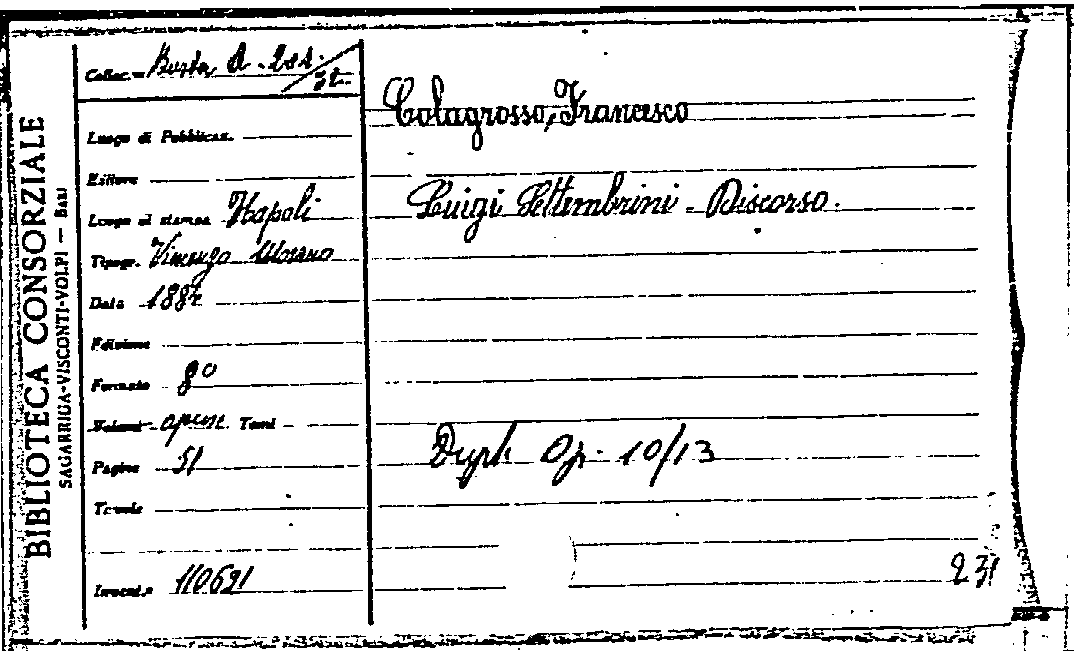 BIBLIOTECA CONSORZIALE
SAGARRIGA-VISCONTI-VOLPI — BARI
Colloc.= Busta A. 281. / 32
Luogo di Pubblicaz.
Editore
Luogo di stampa Napoli
Tipogr. Vincenzo Morano
Data 1887
Edizione
Formato 8º
Volumi opusc. Tomi
Pagine 51
Tavole
Invent.º 110691
Colagrosso, Francesco
Luigi Settembrini - Discorso.
Dupl. Op. 10/13
231